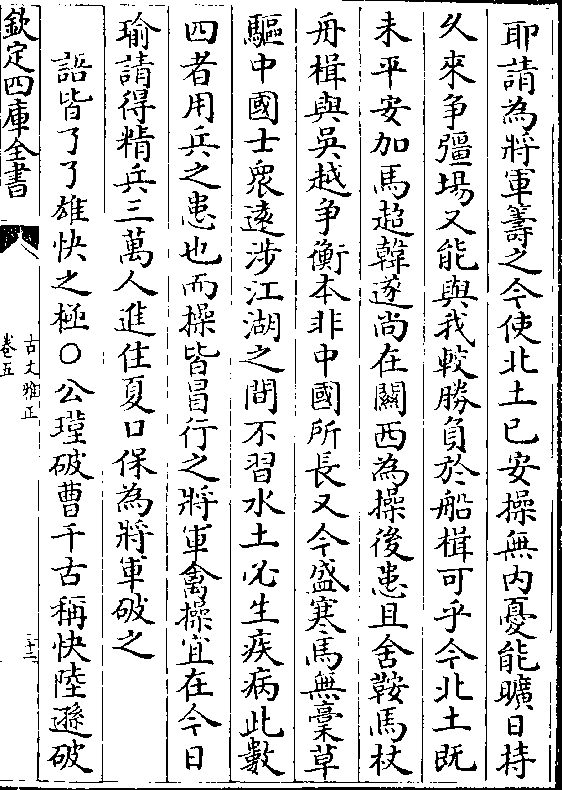 耶請為將軍籌之今使北土已安操無内憂能曠日持
乆來争彊場又能與我較勝負於船楫可乎今北土既
未平安加馬超韓遂尚在關西為操後患且舍鞍馬杖
舟楫與吳越争衡本非中國所長又今盛寒馬無藁草
驅中國士衆遠涉江湖之間不習水土必生疾病此數
四者用兵之患也而操皆冒行之將軍禽操宜在今日
瑜請得精兵三萬人進住夏口保為將軍破之
語皆了了雄快之極○公瑾破曹千古稱快陸遜破
欽定四庫全書
古文雅正
卷五